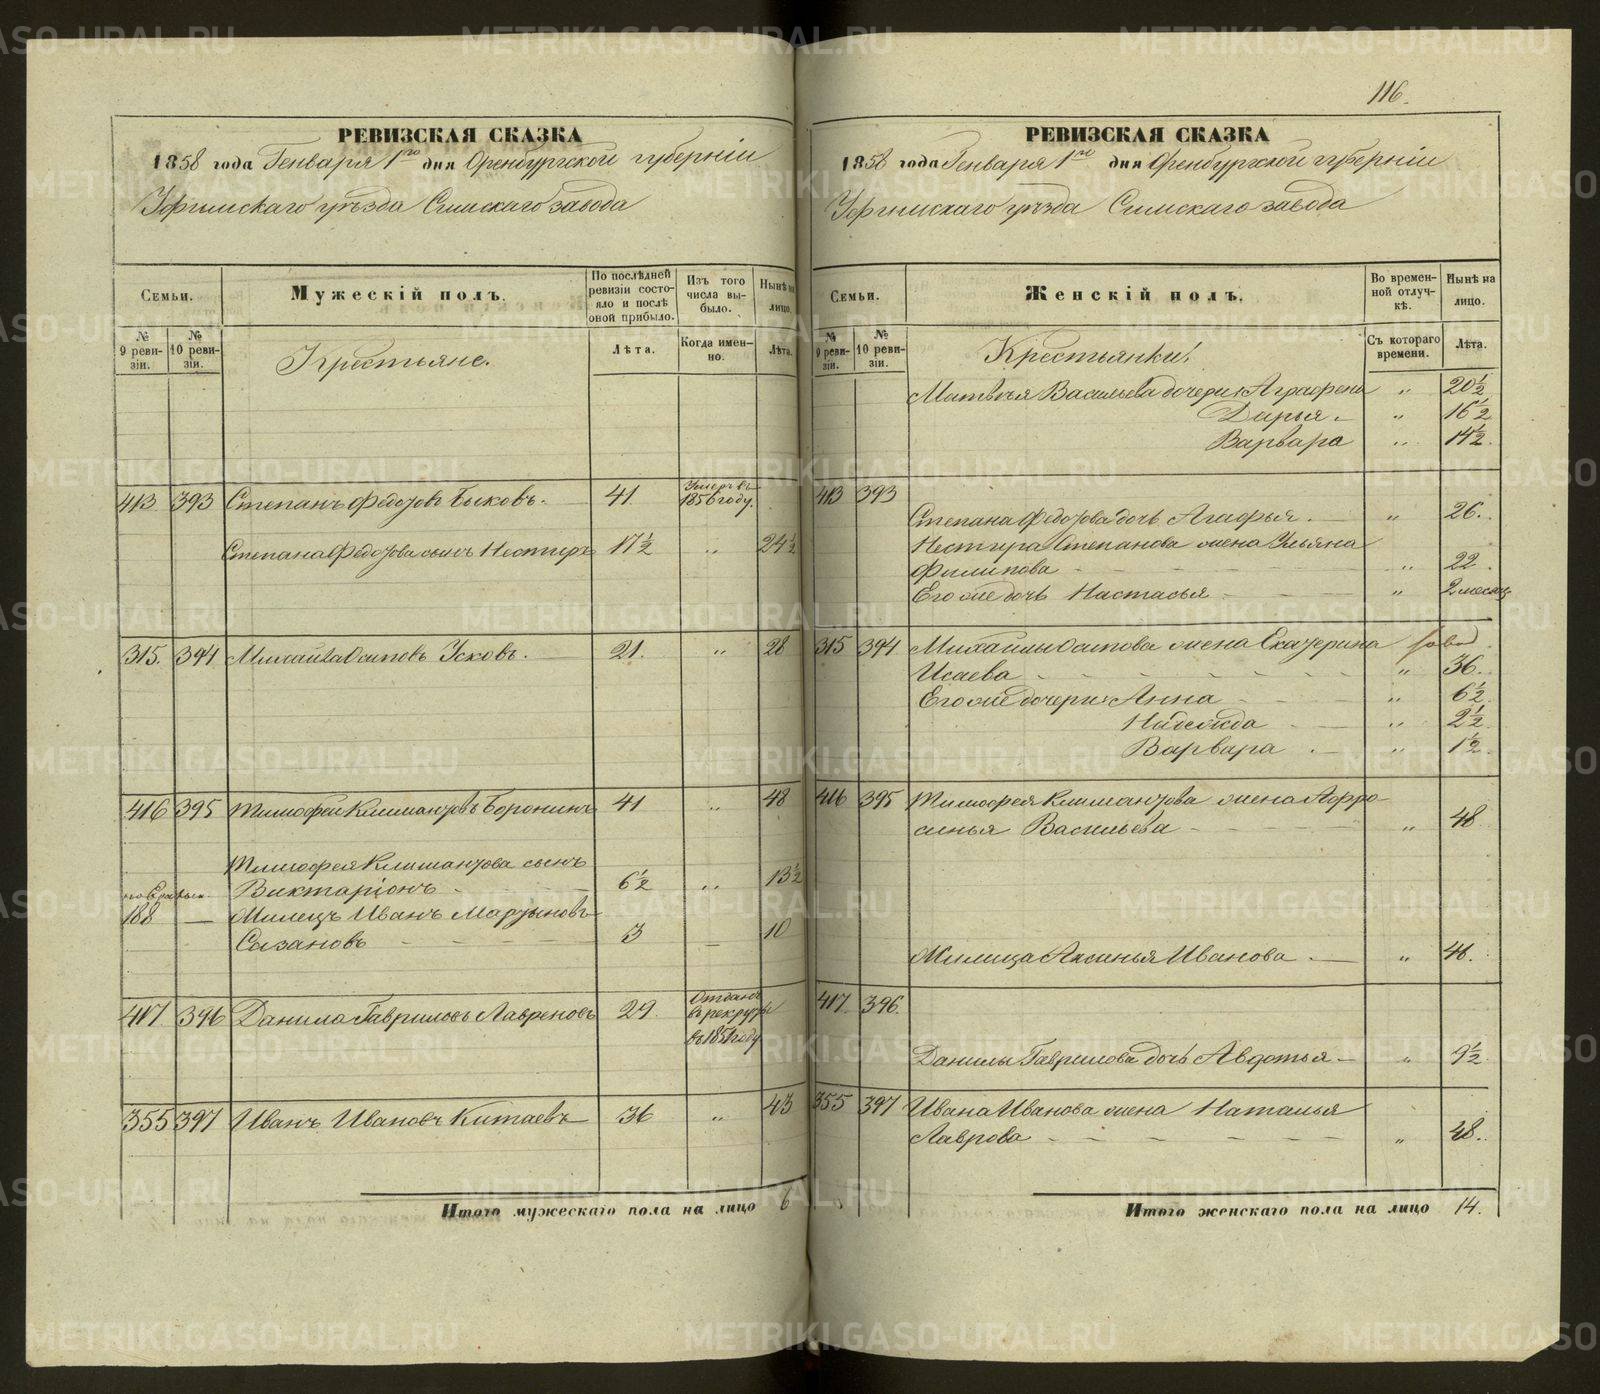 116.
РЕВИЗСКАЯ СКАЗКА
1858 года Генваря 1го дня Оренбургской губерніи
Уфимскаго уѣзда Симскаго завода
Семьи.
Мужескій полъ.
По послѣдней ревизіи состояло и послѣ оной прибыло.
Изъ того числа выбыло.
Нынѣ на лицо.
№ 9 ревизіи.
№ 10 ревизіи.
Крестьяне.
Лѣта.
Когда именно.
Лѣта.
413. 393 Степанъ Федотовъ Быковъ. 41. Умеръ въ 1856 году.
Степана Федотова сынъ Нестиръ 17½ „ 24½
315. 394 Михаила Осиповъ Усковъ. 21. „ 28
416 395 Тимофей Климантовъ Боронинъ 41 „ 48
Тимофея Климантова сынъ
Виктаріонъ 6½ „ 13½
188 — Милецъ Иванъ Мартыновъ
Сазановъ 3 — 10
417. 396 Данила Гавриловъ Лавреновъ 29 Отданъ въ рекруты въ 1851 году
355 397 Иванъ Ивановъ Китаевъ 36 „ 43
Итого мужескаго пола на лицо 6
РЕВИЗСКАЯ СКАЗКА
1858 года Генваря 1го дня Оренбургской губерніи
Уфимскаго уѣзда Симскаго завода
Семьи.
Женскій полъ.
Во временной отлучкѣ.
Нынѣ на лицо.
№ 9 ревизіи.
№ 10 ревизіи.
Крестьянки.
Съ котораго времени.
Лѣта.
Матвѣя Васильева дочери: Аграфена „ 20½
Дарья. „ 16½
Варвара „ 14½.
413 393
Степана Федотова дочь Агафья. „ 26.
Нестира Степанова жена Ульяна
Филипова „ 22.
Его же дочь Настасья „ 2 месяц
315 394 Михаилы Осипова жена Екатерина
Исаева „ 36.
Его же дочери: Анна „ 6½
Надежда „ 2½
Варвара „ 1½.
416 395 Тимофея Климантова жена Афро-
синья Васильева „ 48
Милица Аксинья Иванова „ 46.
417. 396.
Данилы Гаврилова дочь Авдотья „ 9½
355 397 Ивана Иванова жена Наталья
Лаврова „ 48.
Итого женскаго пола на лицо 14.
METRIKI.GASO-URAL.RU